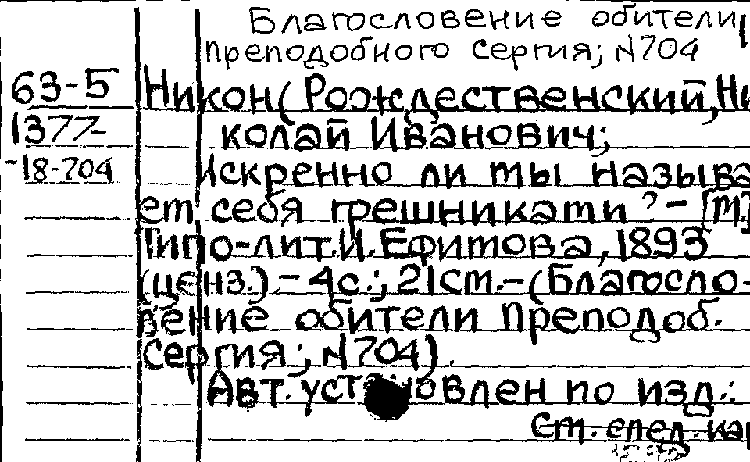 Благословение обители
преподобного Сергия; N704
63-5 Никон (Рождественский, Ни
1377- колай Иванович;
-18-704 Искренно ли ты называ
ет себя грешниками? - [М.]
Типо-лит. И. Ефимова, 1893
(ценз.) - 4с.; 21см. - (Благосло-
вение обители Преподоб.
Сергия; N704).
Авт. установлен по изд.:
См. след. кар